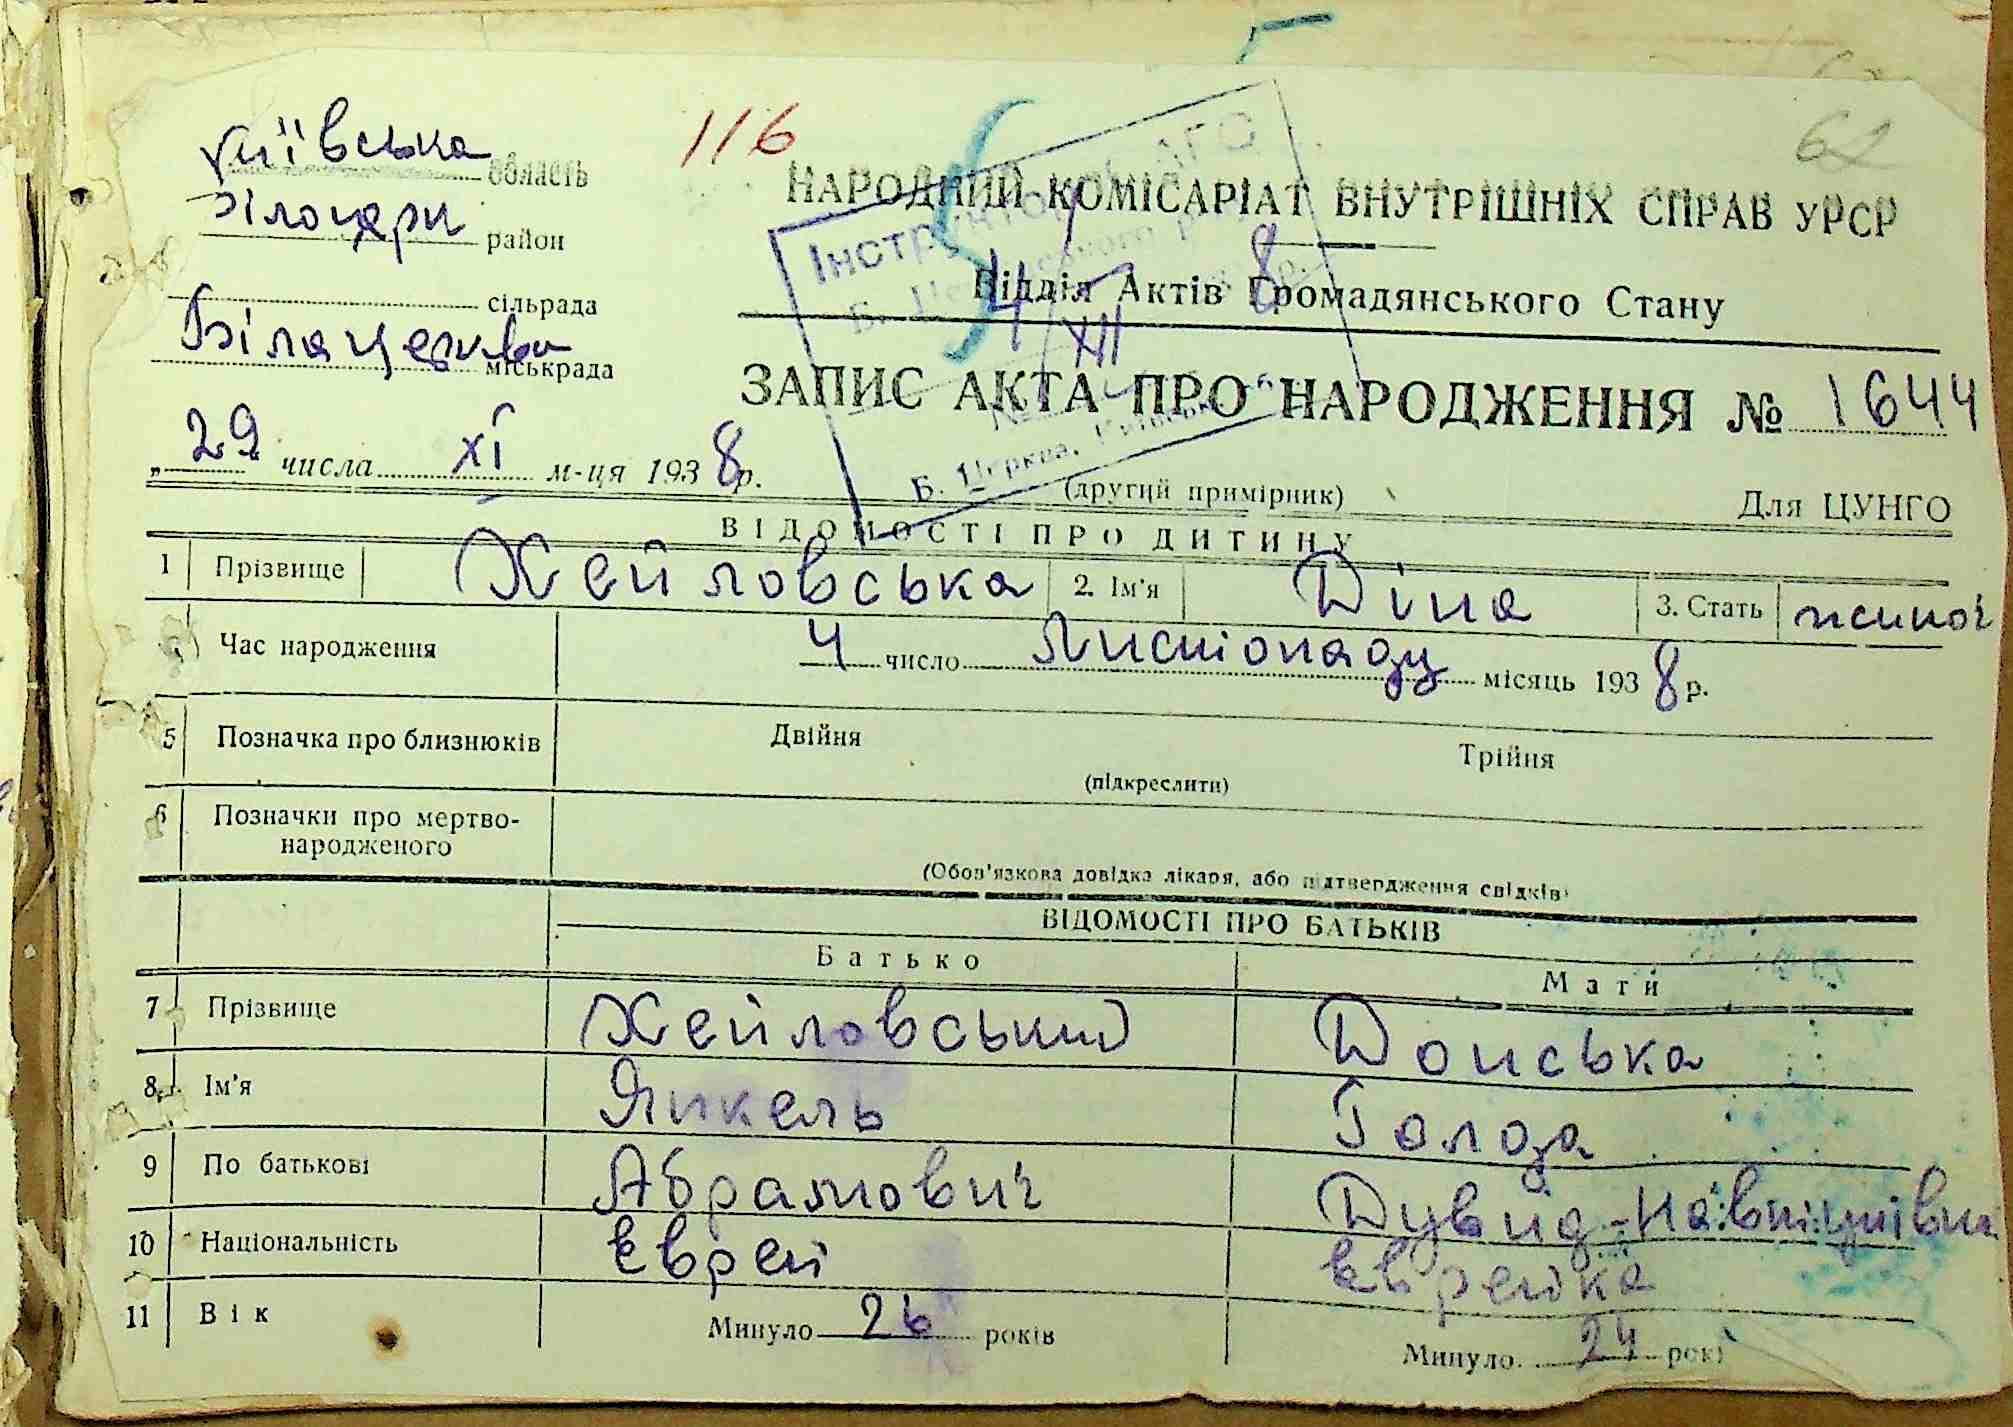 Київська область
116
62
Білоцерк район
НАРОДНИЙ КОМІСАРІАТ ВНУТРІШНІХ СПРАВ УРСР
сільрада
Відділ Актів Громадянського Стану
Біла церква міськрада
4/XII 8
ЗАПИС АКТА ПРО НАРОДЖЕННЯ № 1644
„ 29 числа XI м-ця 1938 р.
Б. Церква,
(другий примірник)
Для ЦУНГО
ВІДОМОСТІ ПРО ДИТИНУ
1 Прізвище Хейловська 2. Ім'я Діна 3. Стать жіноч
Час народження 4 число Листопаду місяць 1938 р.
5 Позначка про близнюків Двійня Трійня
(підкреслити)
6 Позначки про мертво-
народженого
(Обов'язкова довідка лікаря, або підтвердження свідків)
ВІДОМОСТІ ПРО БАТЬКІВ
Батько Мати
7 Прізвище Хейловський Донська
8 Ім'я Янкель Голда
9 По батькові Абрамович Дувид-
10 Національність Єврей Єврейка
11 Вік Минуло 26 років Минуло 24 рокі